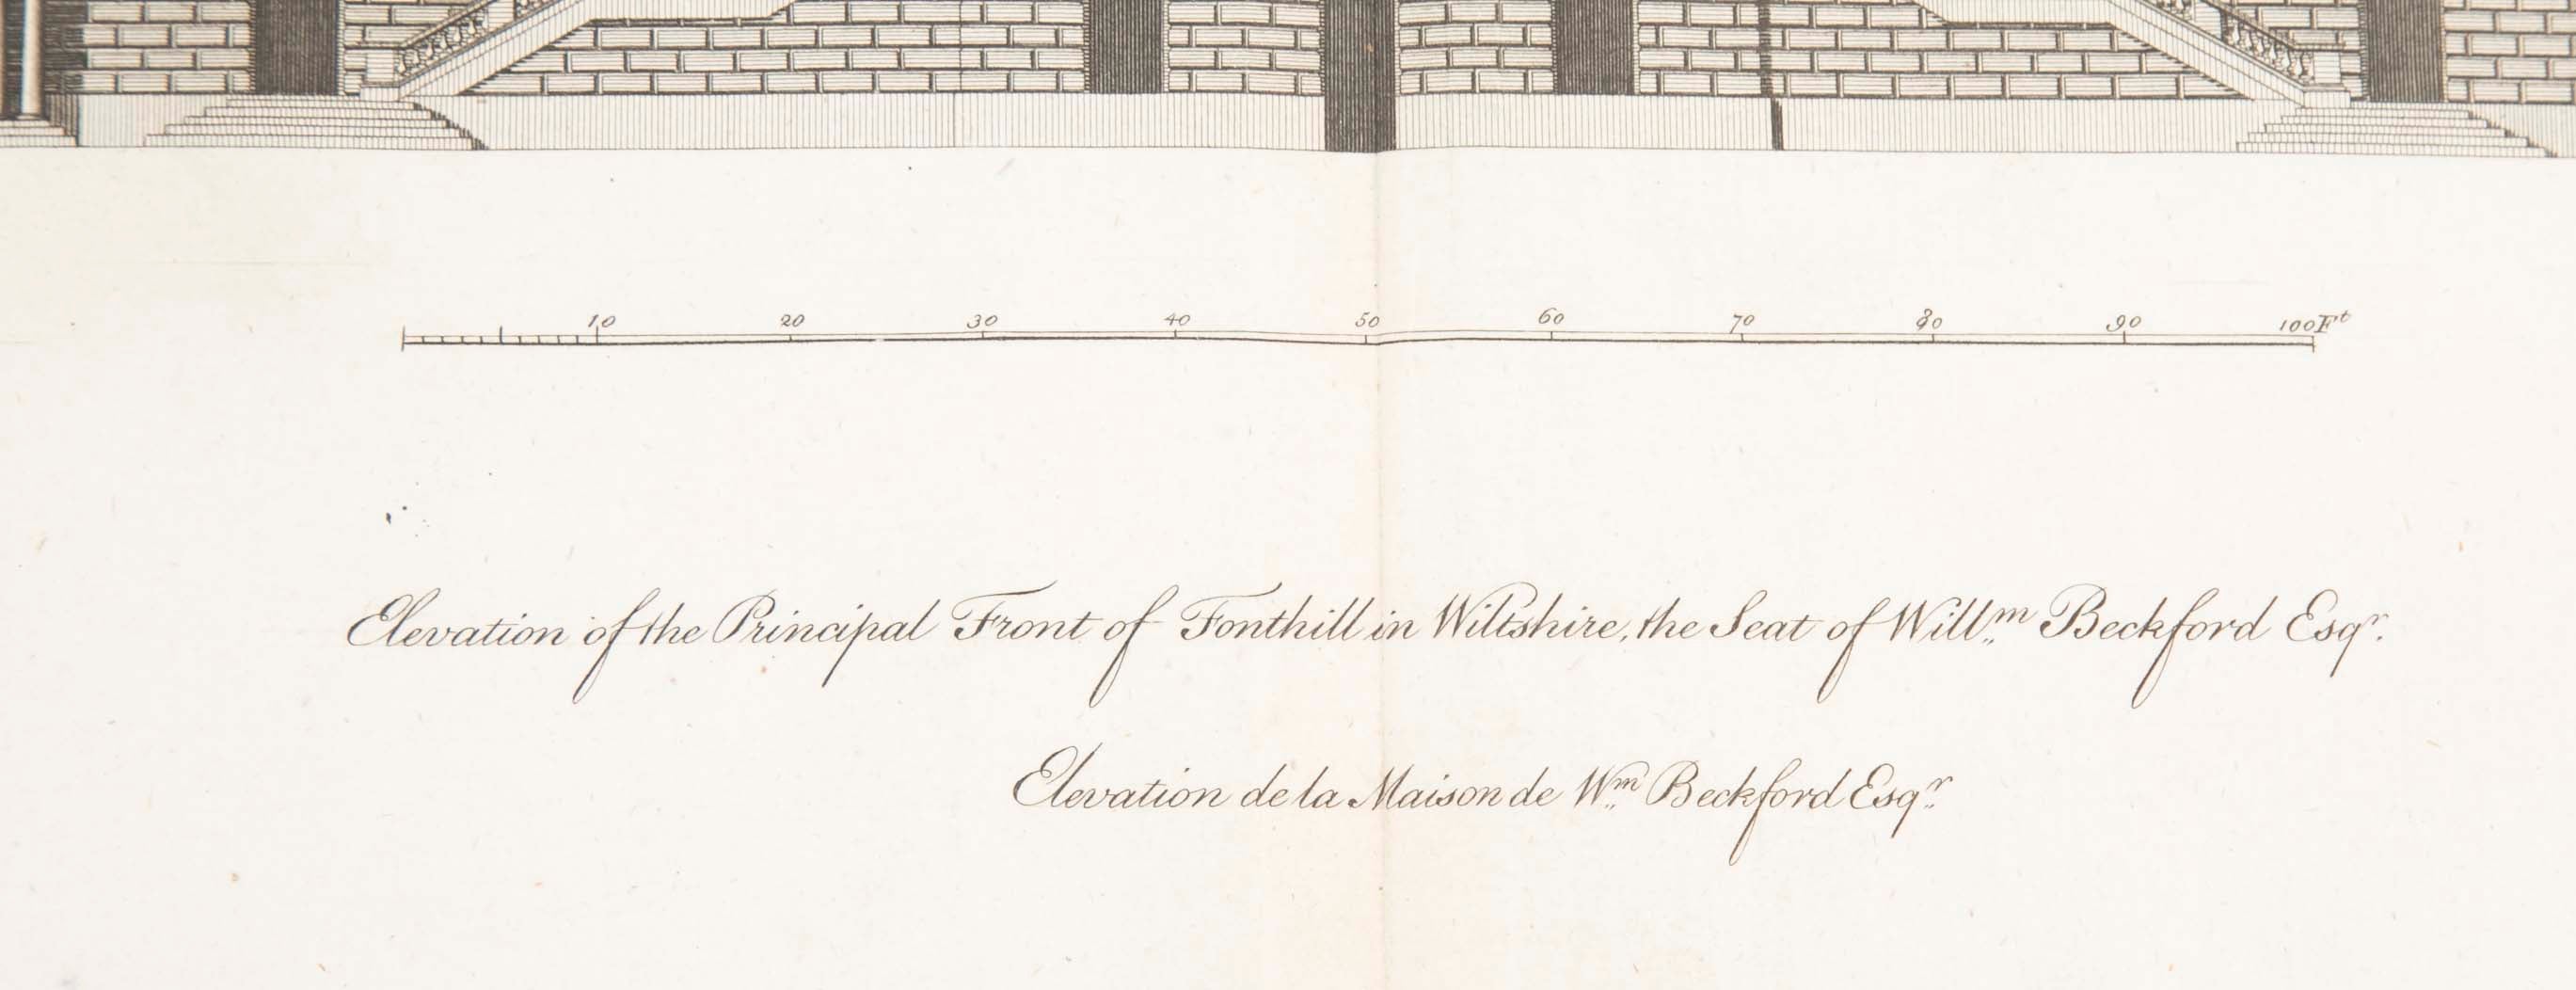 10 20 30 40 50 60 70 80 90 100 Fᵗ
Elevation of the Principal Front of Fonthill in Wiltshire, the Seat of Willᵐ Beckford Esqʳ.
Elevation de la Maison de Wᵐ Beckford Esqʳ